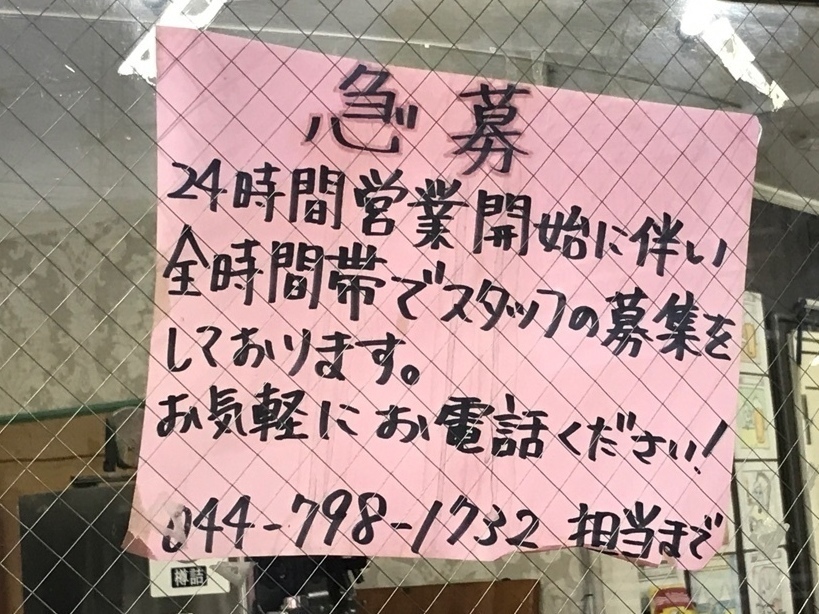 急募
24時間営業開始に伴い
全時間帯でスタッフの募集を
しております。
お気軽にお電話ください!
044-798-1732 担当まで
樽詰